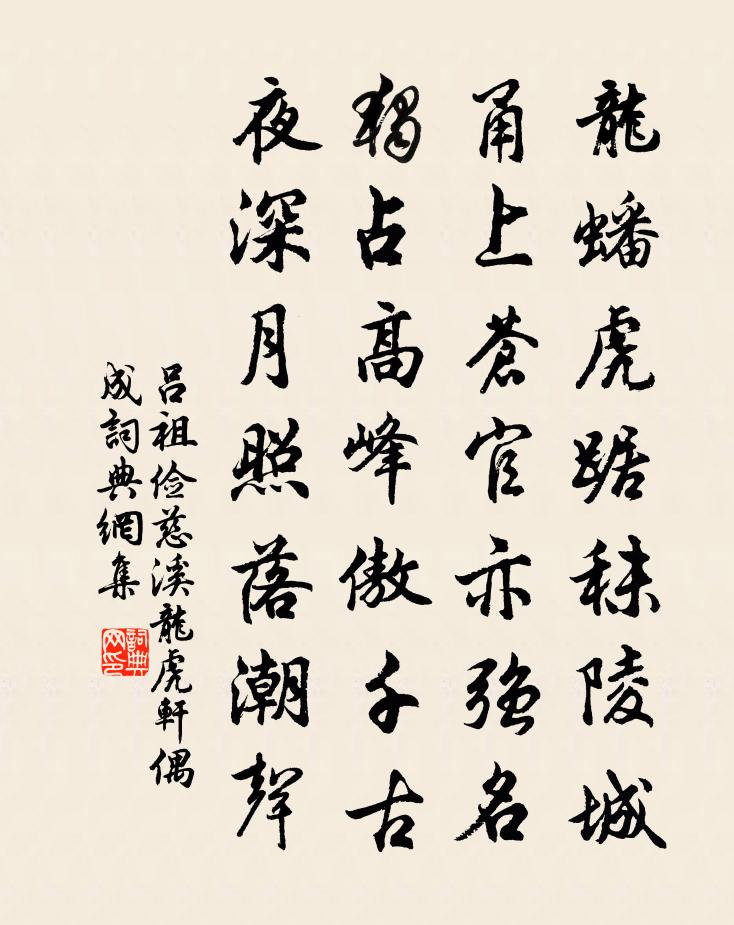 龍蟠虎踞秣陵城
甬上蒼官亦強名
獨占高峰傲千古
夜深月照落潮聲
呂祖儉慈溪龍虎軒偶
成詞典網集
詞典网印